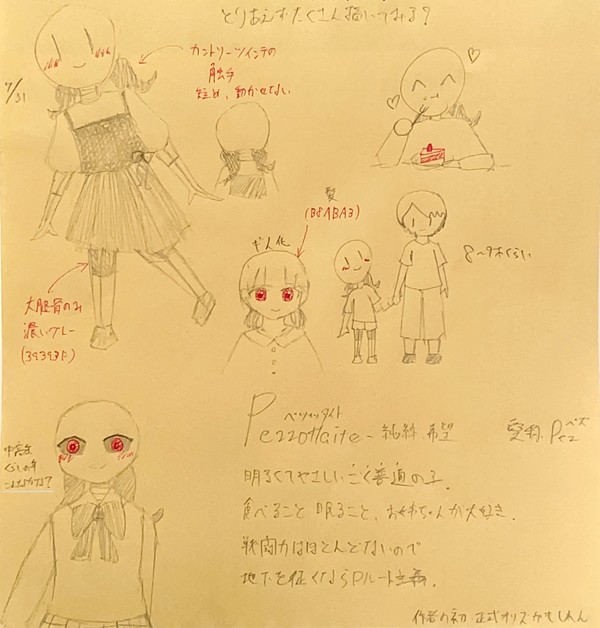 とりあえずたくさん描いてみる？
7/31
カントリーツインテの
触手
短め、動かせない
髪
(B8ABA3)
ギ人化
8〜9才くらい
大腿骨のみ
濃いグレー
(39393F)
ペッツォッタイト
Pezzottaite - 純粋、希望
愛称、Pez ペズ
中高生
くらいの年
こんなかな？
明るくてやさしいごく普通の子。
食べること 眠ること、お姉ちゃんが大好き。
戦闘力はほとんどないので
地下を征くならPルート主義。
作者の初・正式オリズかもしれん